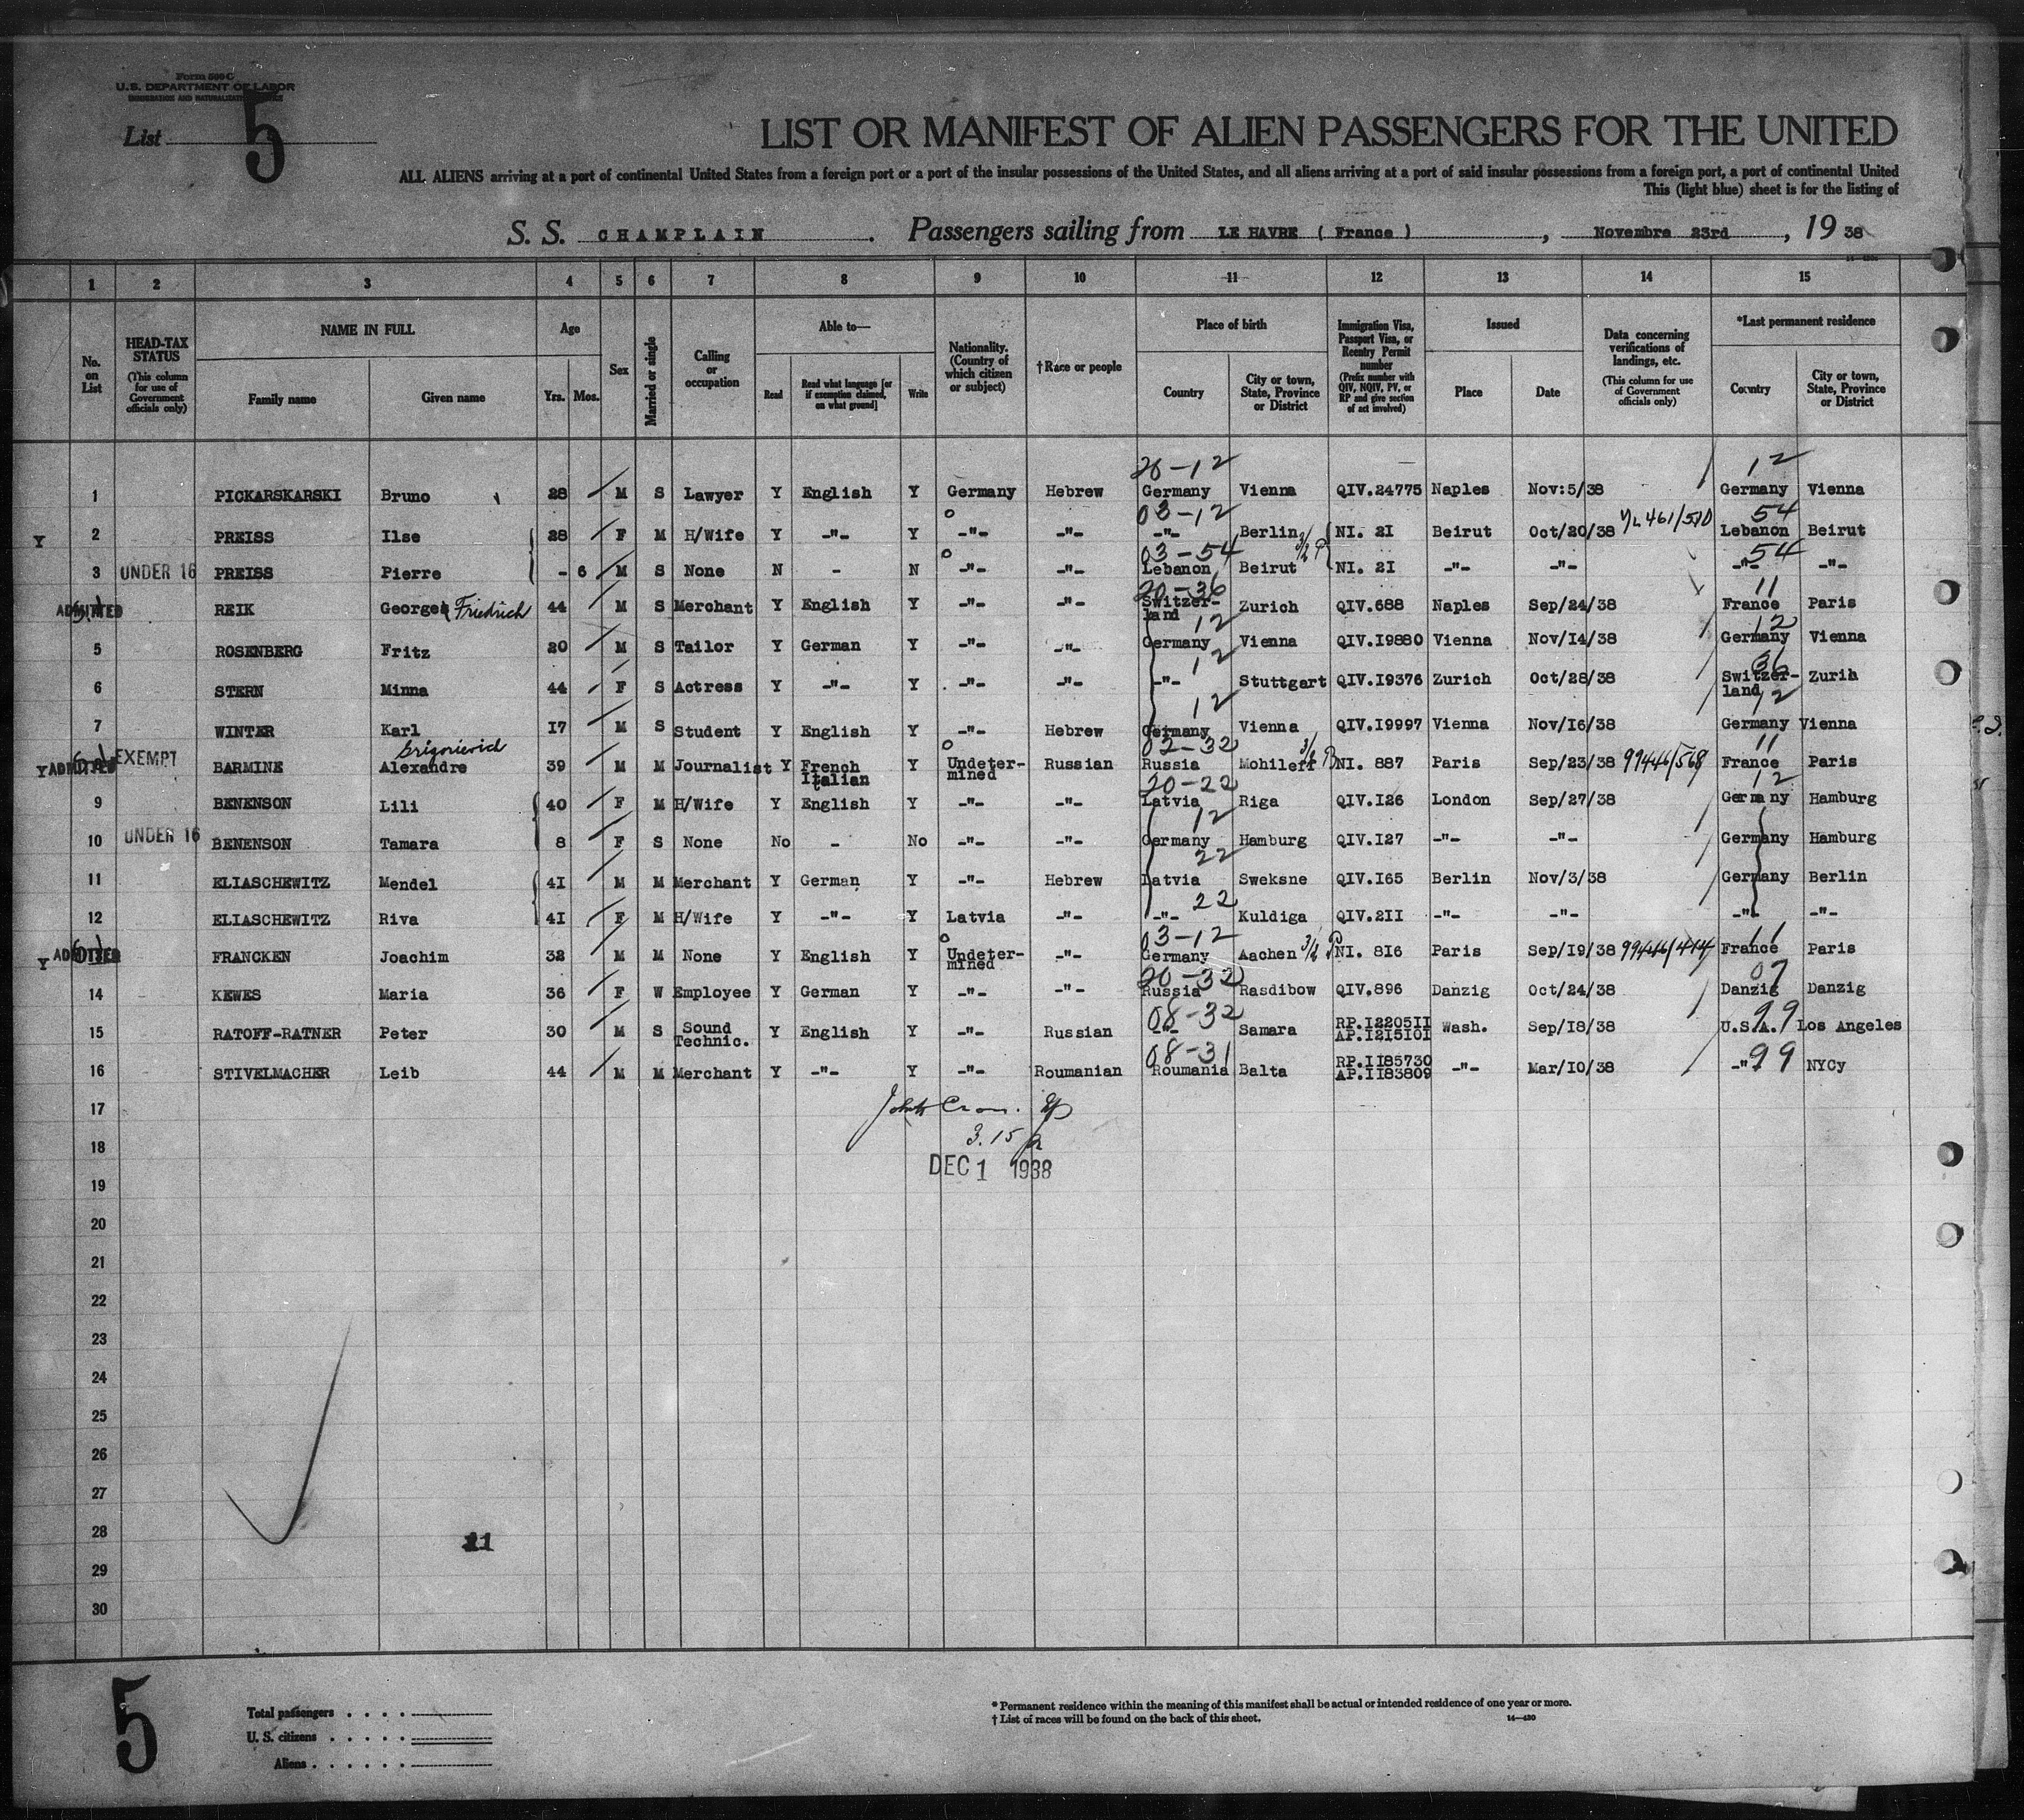 Form 500 C
U.S. DEPARTMENT OF LABOR
IMMIGRATION AND NATURALIZATION SERVICE
List 5
LIST OR MANIFEST OF ALIEN PASSENGERS FOR THE UNITED
ALL ALIENS arriving at a port of continental United States from a foreign port or a port of the insular possessions of the United States, and all aliens arriving at a port of said insular possessions from a foreign port, a port of continental United
This (light blue) sheet is for the listing of
S. S. CHAMPLAIN. Passengers sailing from LE HAVRE ( France ), Novembre 23rd, 19 38
1 2 3 4 5 6 7 8 9 10 11 12 13 14 15
No. on List
HEAD-TAX STATUS (This column for use of Government officials only)
NAME IN FULL
Family name Given name
Age
Yrs. Mos.
Sex
Married or single
Calling or occupation
Able to—
Read Read what language [or if exemption claimed, on what ground] Write
Nationality. (Country of which citizen or subject)
†Race or people
Place of birth
Country City or town, State, Province or District
Immigration Visa, Passport Visa, or Reentry Permit number (Prefix number with QIV, NQIV, PV, or RP and give section of act involved)
Issued
Place Date
Data concerning verifications of landings, etc. (This column for use of Government officials only)
*Last permanent residence
Country City or town, State, Province or District
26-12 12
1 PICKARSKARSKI Bruno 28 M S Lawyer Y English Y Germany Hebrew Germany Vienna QIV.24775 Naples Nov:5/38 Germany Vienna
03-12 54
Y 2 PREISS Ilse 28 F M H/Wife Y -"- Y -"- -"- -"- Berlin 3/2 P NI. 2I Beirut Oct/20/38 461/510 Lebanon Beirut
03-54 54
3 UNDER 16 PREISS Pierre - 6 M S None N - N -"- -"- Lebanon Beirut NI. 2I -"- -"- -"- -"-
20-36 11
ADMITTED REIK Georges Friedrich 44 M S Merchant Y English Y -"- -"- Switzer-land Zurich QIV.688 Naples Sep/24/38 France Paris
12 12
5 ROSENBERG Fritz 20 M S Tailor Y German Y -"- -"- Germany Vienna QIV.I9880 Vienna Nov/I4/38 Germany Vienna
12 36
6 STERN Minna 44 F S Actress Y -"- Y -"- -"- -"- Stuttgart QIV.I9376 Zurich Oct/28/38 Switzer-land Zurih
12 12
7 WINTER Karl I7 M S Student Y English Y -"- Hebrew Germany Vienna QIV.I9997 Vienna Nov/I6/38 Germany Vienna
Grigorievich 02-32 11
Y ADMITTED EXEMPT BARMINE Alexandre 39 M M Journalist Y French Italian Y Undeter-mined Russian Russia Mohileff 3/2 P NI. 887 Paris Sep/23/38 99446/568 France Paris
20-22 12
9 BENENSON Lili 40 F M H/Wife Y English Y -"- -"- Latvia Riga QIV.I26 London Sep/27/38 Germany Hamburg
12
10 UNDER 16 BENENSON Tamara 8 F S None No - No -"- -"- Germany Hamburg QIV.I27 -"- -"- Germany Hamburg
22
11 ELIASCHEWITZ Mendel 4I M M Merchant Y German Y -"- Hebrew Latvia Sweksne QIV.I65 Berlin Nov/3/38 Germany Berlin
22
12 ELIASCHEWITZ Riva 4I F M H/Wife Y -"- Y Latvia -"- -"- Kuldiga QIV.2II -"- -"- -"- -"-
03-12 11
Y ADMITTED FRANCKEN Joachim 32 M M None Y English Y Undeter-mined -"- Germany Aachen 3/2 P NI. 8I6 Paris Sep/I9/38 99446/414 France Paris
20-32 07
14 KEWES Maria 36 F W Employee Y German Y -"- -"- Russia Rasdibow QIV.896 Danzig Oct/24/38 Danzig Danzig
08-32 99
15 RATOFF-RATNER Peter 30 M S Sound Technic. Y English Y -"- Russian -"- Samara RP.I2205II AP.I2I5I0I Wash. Sep/I8/38 U.S.A. Los Angeles
08-31 99
16 STIVELMACHER Leib 44 M M Merchant Y -"- Y -"- Roumanian Roumania Balta RP.II85730 AP.II83809 -"- Mar/I0/38 -"- NYCy
17
3.15
18
DEC 1 1938
19
20
21
22
23
24
25
26
27
28
11
29
30
5
Total passengers . . . .
U. S. citizens . . . . .
Aliens . . . . . .
* Permanent residence within the meaning of this manifest shall be actual or intended residence of one year or more.
† List of races will be found on the back of this sheet. 14—430